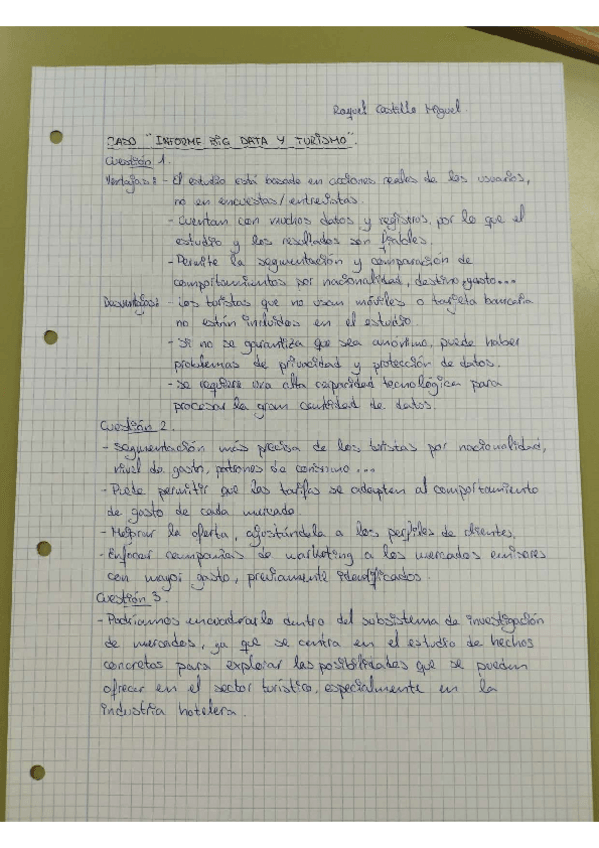 Raquel Castillo Miguel.
CASO "INFORME BIG DATA Y TURISMO".
Cuestión 1.
Ventajas: - El estudio está basado en acciones reales de los usuarios,
no en encuestas/entrevistas.
- Cuentan con muchos datos y registros, por lo que el
estudio y los resultados son fiables.
- Permite la segmentación y comparación de
comportamientos por nacionalidad, destino, gasto...
Desventajas: - Los turistas que no usan móviles o tarjeta bancaria
no están incluidos en el estudio.
- Si no se garantiza que sea anónimo, puede haber
problemas de privacidad y protección de datos.
- Se requiere una alta capacidad tecnológica para
procesar la gran cantidad de datos.
Cuestión 2.
- Segmentación más precisa de los turistas por nacionalidad,
nivel de gasto, patrones de consumo...
- Puede permitir que las tarifas se adapten al comportamiento
de gasto de cada mercado.
- Mejorar la oferta, ajustándola a los perfiles de clientes.
- Enfocar campañas de marketing a los mercados emisores
con mayor gasto, previamente identificados.
Cuestión 3.
- Podríamos encuadrarlo dentro del subsistema de investigación
de mercados, ya que se centra en el estudio de hechos
concretos para explorar las posibilidades que se puedan
ofrecer en el sector turístico, especialmente en la
industria hotelera.